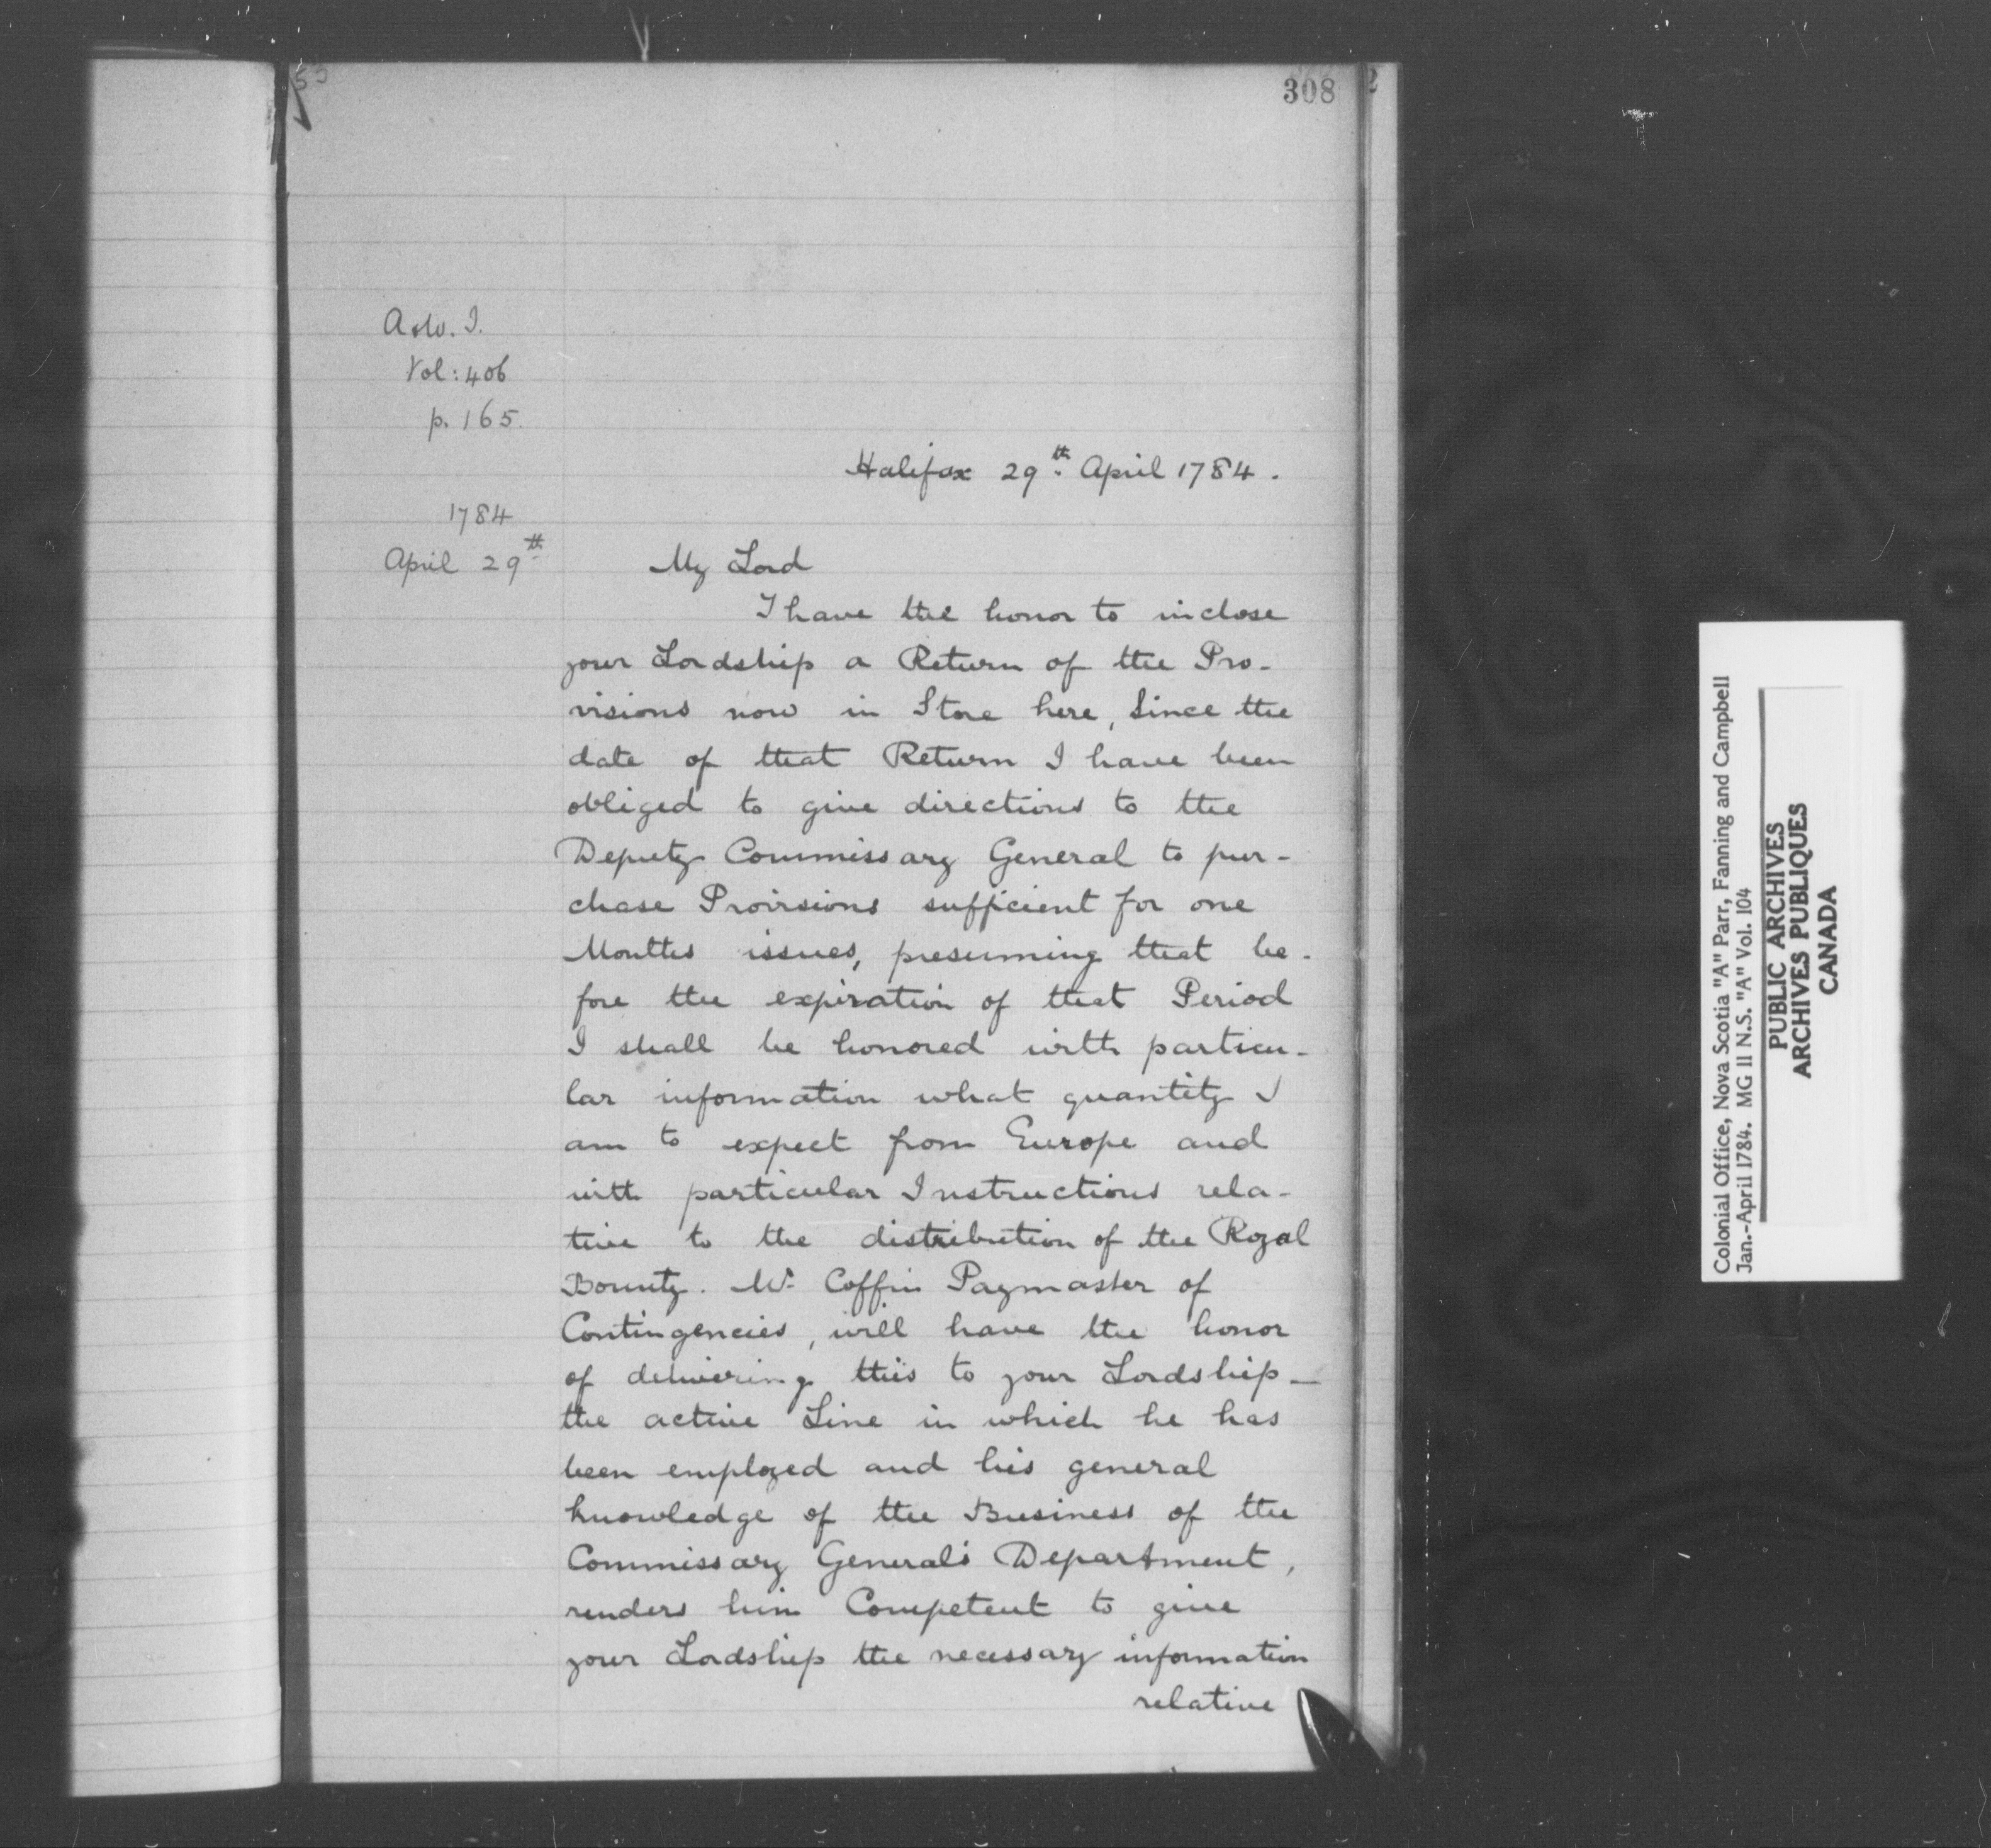 308
A&W. I.
Vol: 406
p. 165.
Halifax 29th. April 1784.
1784
April 29th
My Lord
I have the honor to inclose
your Lordship a Return of the Pro-
visions now in Store here, Since the
date of that Return I have been
obliged to give directions to the
Deputy Commissary General to pur-
chase Provisions sufficient for one
Months issues, presuming that be-
fore the expiration of that Period
I shall be honored with particu-
lar information what quantity I
am to expect from Europe and
with particular Instructions rela-
tive to the distribution of the Royal
Bounty. Mr. Coffin Paymaster of
Contingencies, will have the honor
of delivering this to your Lordship—
the active Line in which he has
been employed and his general
knowledge of the Business of the
Commissary General's Department,
renders him Competent to give
your Lordship the necessary information
relative
Colonial Office, Nova Scotia "A" Parr, Fanning and Campbell
Jan.-April 1784. MG 11 N.S. "A" Vol. 104
PUBLIC ARCHIVES
ARCHIVES PUBLIQUES
CANADA